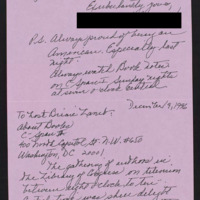 Exuberantly yours,
P.S. Always proud of being an
American. Especially last
night.
Always watch Book notes
on C-Span's Sunday nights
at seven o'clock central
December 9, 1996
To host Brian Lamb
About Books
C-Span II
400 North Capitol St. N.W. #650
Washington, DC 20001
The gathering of authors in
the Library of Congress on television
between eight o'clock to ten
was sheer delight